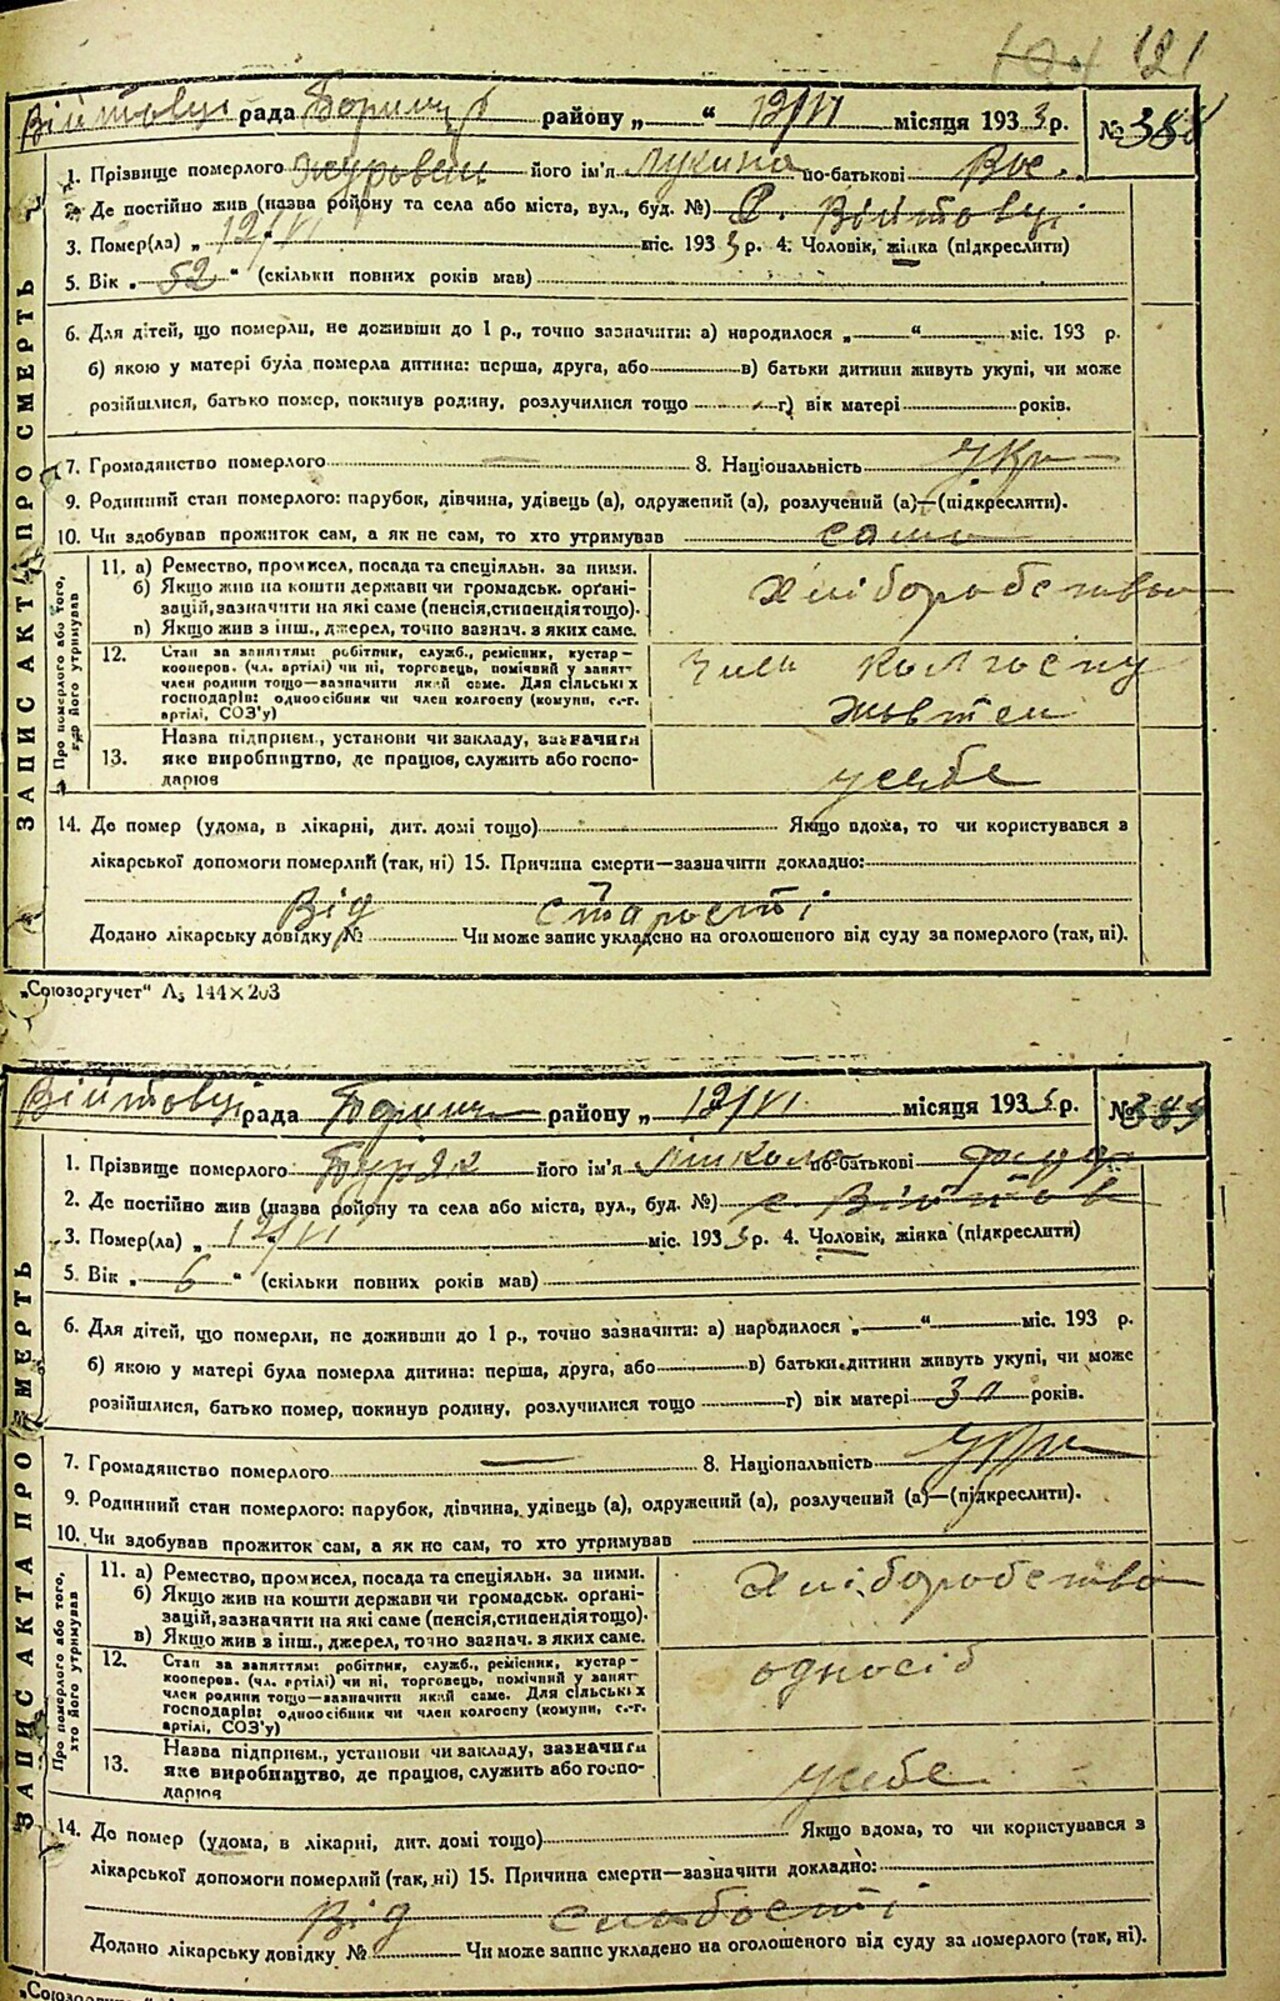 121
Війтовці рада Борисп району „ “ 12/VI місяця 1933 р. № 388
1. Прізвище померлого його ім'я Лукина по-батькові Вас.
2. Де постійно жив (назва району та села або міста, вул., буд. №) с. Війтовці
3. Помер(ла) „ 12/VI міс. 1933 р. 4. Чоловік, жінка (підкреслити)
5. Вік „ 52 “ (скільки повних років мав)
6. Для дітей, що померли, не доживши до 1 р., точно зазначити: а) народилося „ “ міс. 193 р.
б) якою у матері була померла дитина: перша, друга, або в) батьки дитини живуть укупі, чи може
розійшлися, батько помер, покинув родину, розлучилися тощо г) вік матері років.
7. Громадянство померлого — 8. Національність Укр
9. Родинний стан померлого: парубок, дівчина, удівець (а), одружений (а), розлучений (а)—(підкреслити).
10. Чи здобував прожиток сам, а як не сам, то хто утримував сама
11. а) Ремество, промисел, посада та спеціяльн. за ними.
б) Якщо жив на кошти держави чи громадськ. орґані-
зацій, зазначити на які саме (пенсія, стипендія тощо).
в) Якщо жив з інш., джерел, точно зазнач. з яких саме.
Хліборобство
12. Стан за заняттям: робітник, служб., ремісник, кустар-
кооперов. (чл. артілі) чи ні, торговець, помічний у занят-
член родини тощо—зазначити який саме. Для сільських
господарів: одноосібник чи член колгоспу (комуни, с.-г.
артілі, СОЗ'у)
член колгоспу
Жовтень
13. Назва підприєм., установи чи закладу, зазначити
яке виробництво, де працює, служить або госпо-
дарює
усебе
14. Де помер (удома, в лікарні, дит. домі тощо) Якщо вдома, то чи користувався з
лікарської допомоги померлий (так, ні) 15. Причина смерти—зазначити докладно:
Від старости
Додано лікарську довідку № Чи може запис укладено на оголошеного від суду за померлого (так, ні).
ЗАПИС АКТА ПРО СМЕРТЬ
Про померлого або того,
хто його утримував
„Союзоргучет“ А5 144×203
Війтовці рада Борисп району „ 12/VI місяця 1933 р. № 389
1. Прізвище померлого Буряк його ім'я Микола по-батькові Федор
2. Де постійно жив (назва району та села або міста, вул., буд. №) с. Війтов
3. Помер(ла) „ 12/VI міс. 1933 р. 4. Чоловік, жінка (підкреслити)
5. Вік „ 6 “ (скільки повних років мав)
6. Для дітей, що померли, не доживши до 1 р., точно зазначити: а) народилося „ “ міс. 193 р.
б) якою у матері була померла дитина: перша, друга, або в) батьки дитини живуть укупі, чи може
розійшлися, батько помер, покинув родину, розлучилися тощо г) вік матері 30 років.
7. Громадянство померлого — 8. Національність Укр
9. Родинний стан померлого: парубок, дівчина, удівець (а), одружений (а), розлучений (а)—(підкреслити).
10. Чи здобував прожиток сам, а як не сам, то хто утримував
11. а) Ремество, промисел, посада та спеціяльн. за ними.
б) Якщо жив на кошти держави чи громадськ. орґані-
зацій, зазначити на які саме (пенсія, стипендія тощо).
в) Якщо жив з інш., джерел, точно зазнач. з яких саме.
Хліборобство
12. Стан за заняттям: робітник, служб., ремісник, кустар-
кооперов. (чл. артілі) чи ні, торговець, помічний у занят-
член родини тощо—зазначити який саме. Для сільських
господарів: одноосібник чи член колгоспу (комуни, с.-г.
артілі, СОЗ'у)
односіб
13. Назва підприєм., установи чи закладу, зазначити
яке виробництво, де працює, служить або госпо-
дарює
усебе
14. Де помер (удома, в лікарні, дит. домі тощо) Якщо вдома, то чи користувався з
лікарської допомоги померлий (так, ні) 15. Причина смерти—зазначити докладно:
Від слабості
Додано лікарську довідку № Чи може запис укладено на оголошеного від суду за померлого (так, ні).
ЗАПИС АКТА ПРО СМЕРТЬ
Про померлого або того,
хто його утримував